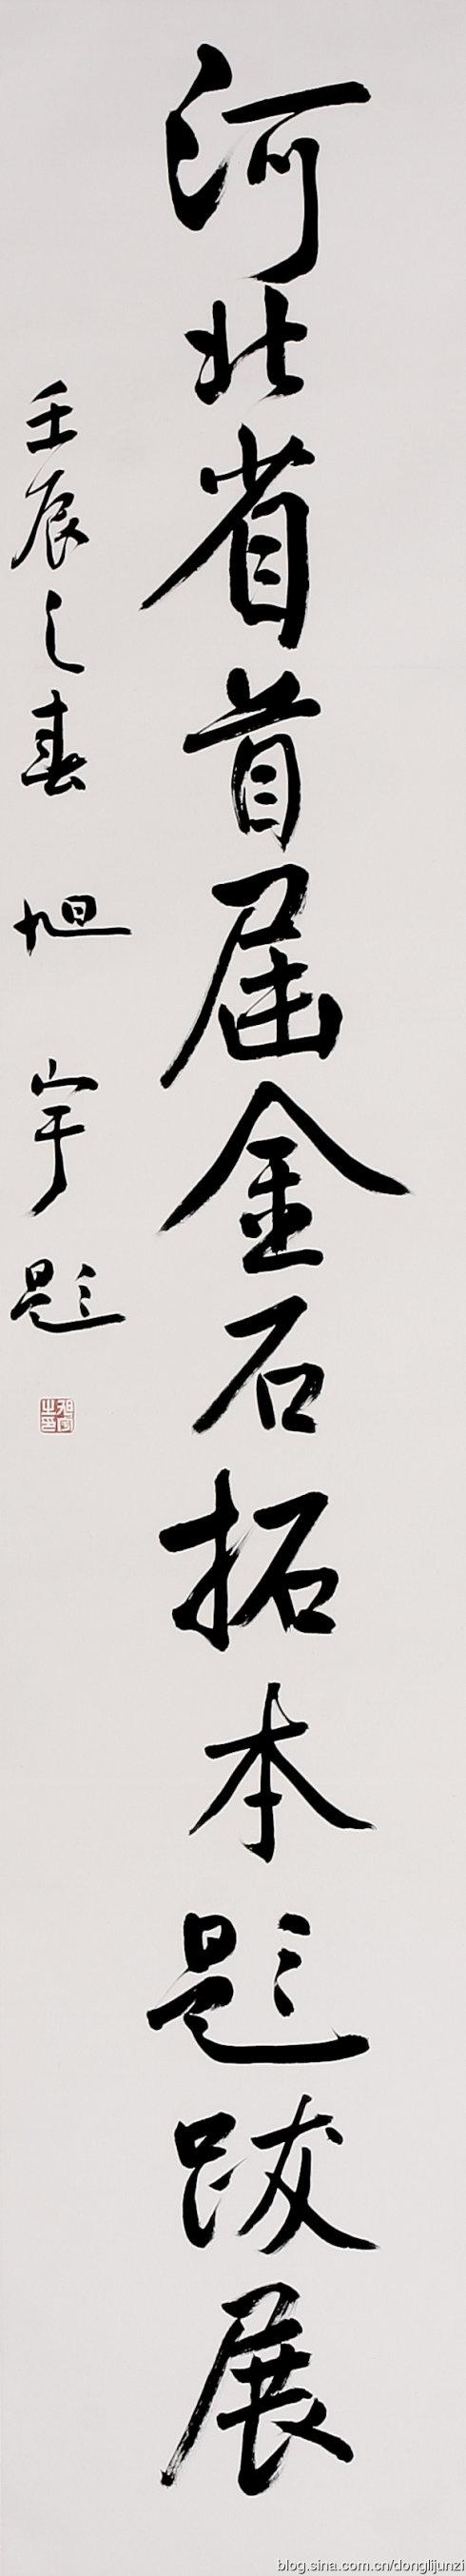 河北省首届金石拓本题跋展
壬辰之春 旭宇题
旭宇之印
blog.sina.com.cn/donglijunzi